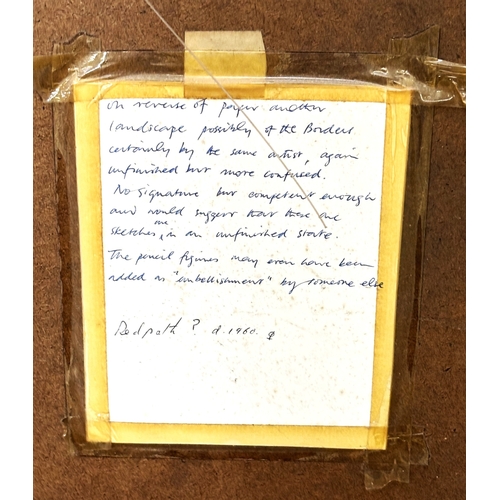 on reverse of paper another
landscape possibly of the Borders
certainly by the same artist, again
unfinished but more confused.
No signature but competent enough
and would suggest that these are
sketches, one in an unfinished state.
The pencil figures may even have been
added as "embellishment" by someone else
Redpath ? d. 1960.